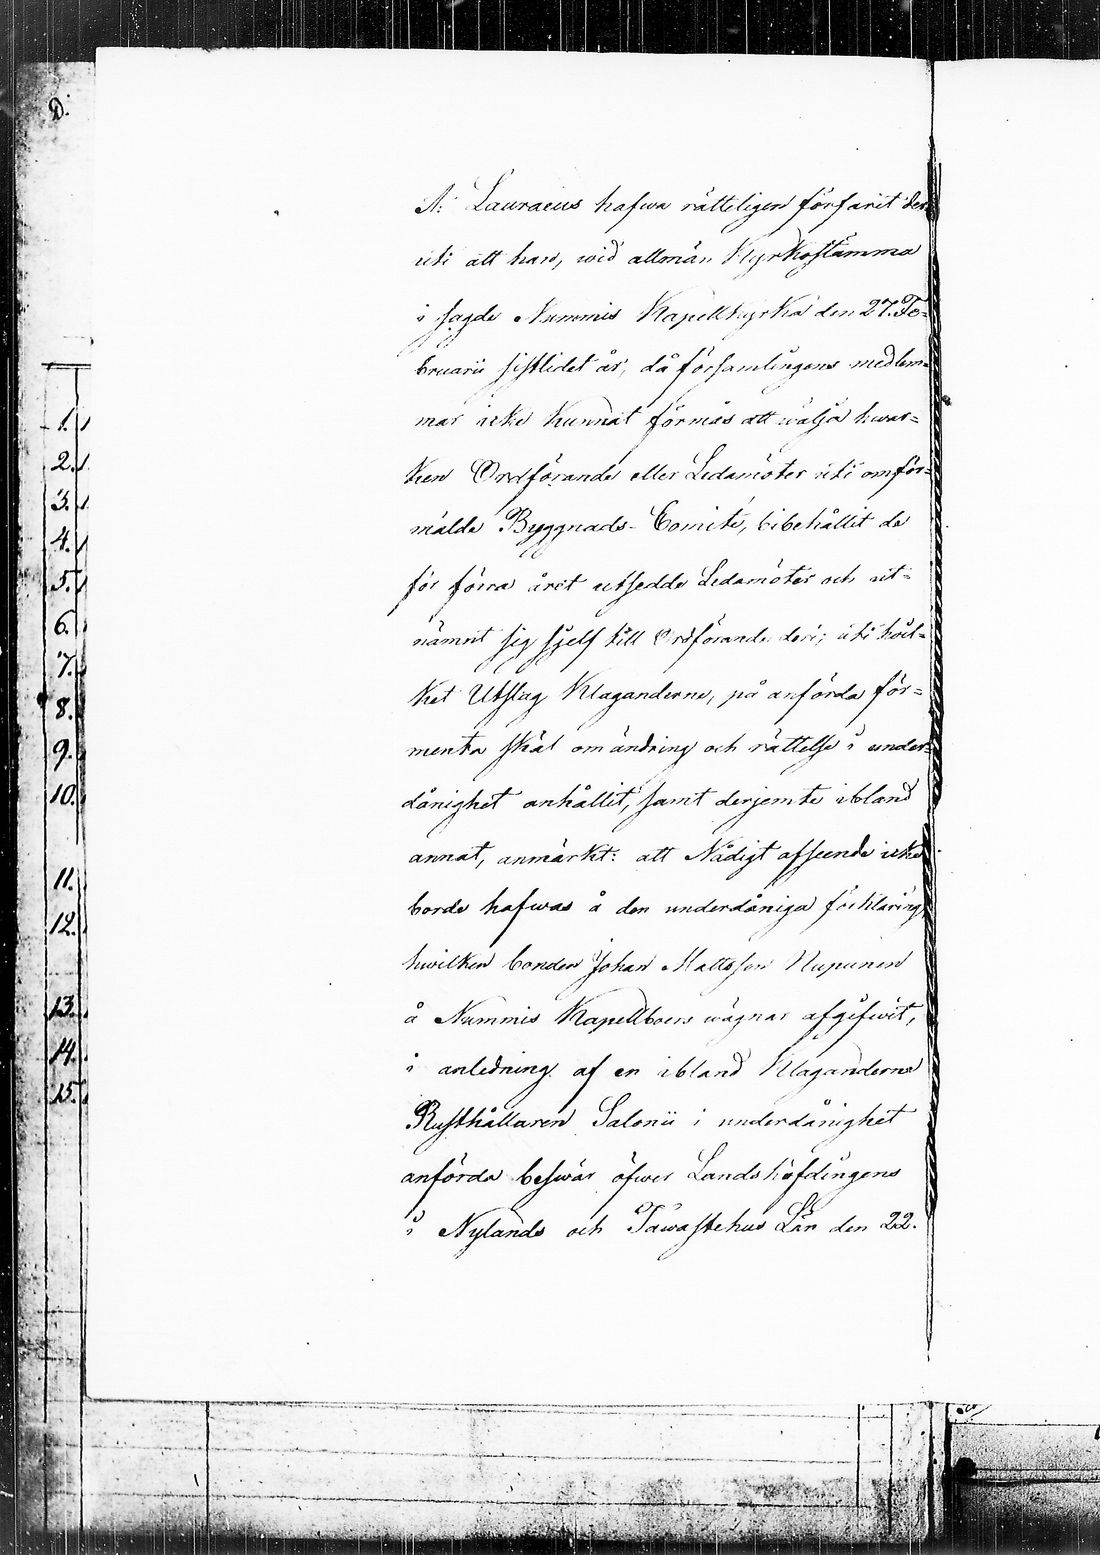 D.
1.
2.
3.
4.
5.
6.
7.
8.
9.
10.
11.
12.
13.
14.
15.
A: Lauraeus hafwa rätteligen förfarit der
uti att han, wid allmän Kyrkostämma
i sagde Nummis Kapellkyrka den 27. Fe=
bruarii sistlidet år, då församlingens medlem=
mar icke kunnat förmås att wälja hwar=
ken Ordförande eller Ledamöter uti omför=
mälde Byggnads-Comité, bibehållit de
för förra året utsedde Ledamöter och ut=
nämnt sig sjelf till Ordförande deri; uti hvil=
ket Utslag Klaganderne, på anförda för=
menta skäl om ändring och rättelse i under=
dånighet anhållit, samt derjemte ibland
annat, anmärkt: att Nådigt afseende icke
borde hafwas å den underdåniga förklaring,
hwilken bonden Johan Mattsson Nupunen
å Nummis Kapellboers wägnar afgifwit,
i anledning af en ibland Klaganderne
Rusthållaren Salonii i underdånighet
anförda beswär öfwer Landshöfdingens
i Nylands och Tawastehus Län den 22.